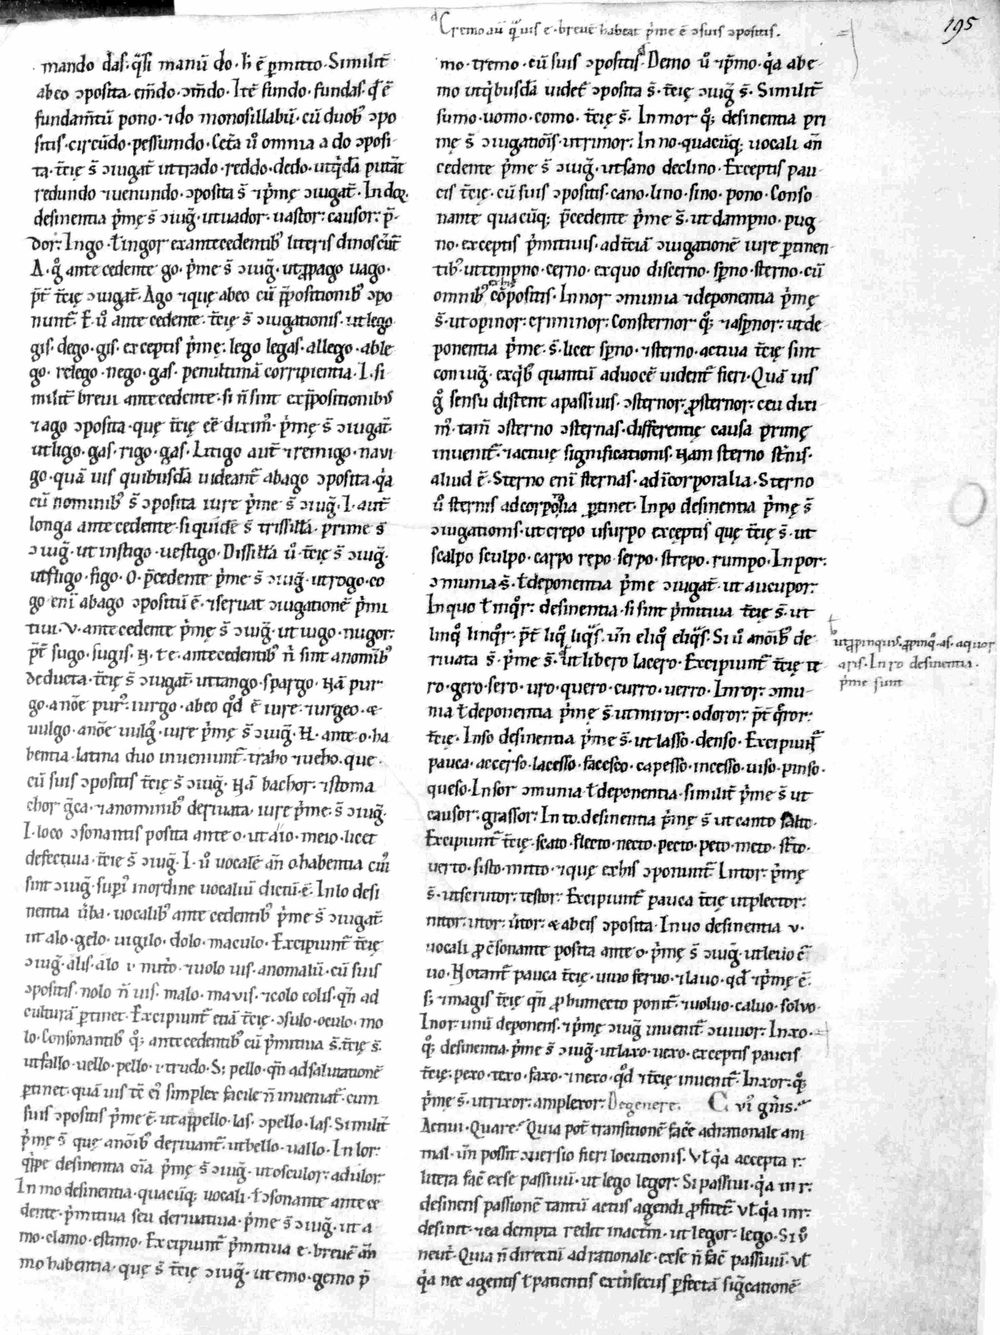 195
Cremo aū q̄uis e breuē habeat p̄me ē ɔsuis ɔpositis.
mando das. q̄si manū do. h̄ ē ꝑmitto. Similit̄
abeo ɔposita. cm̄do. ɔm̄do. Itē fundo. fundas. qd̄ ē
fundam̄tū pono. ⁊do monosillabū. cū duobꝰ ɔpo
sitis. circūdo. pessundo. Cet̄a u̇ omnia a do ɔposi
ta. t̄cię s̄ ɔiugat̄ ut trado. reddo. dedo. utq̄dā putāt
redundo ⁊uenundo. ɔposita s̄ ⁊p̄mę ɔiugat̄. In
desinentia p̄mę s̄ ɔiuḡ. ut uador. uastor. causor. p̄
dor. Ingo. ł ingor ex antecedentibꝰ literis dinoscūt̄
A. g̊ ante cedente go. p̄me s̄ ɔiuḡ. ut ꝓpago uago.
p̄t̄ t̄cię ɔiugat̄. Ago ⁊quę abeo cū p̄positionibꝰ ɔpo
nunt̄. E. u̇ ante cedente. t̄cię s̄ ɔiugationis. ut lego
gis. dego. gis. exceptis p̄mę. lego legas. allego. able
go. relego. nego. gas. penultimā corripientia. I. si
milit̄ breui ante cedente. si n̄ sint ex p̄positionibꝰ
⁊ago ɔposita. quę t̄cię eē dixim̄. p̄mę s̄ ɔiugat̄.
ut ligo. gas. rigo. gas. Litigo aut̄ ⁊remigo. naui
go. quā uis quibusdā uideant̄ abago ɔposita. q̇a
cū nominibꝰ s̄ ɔposita iure p̄me s̄ ɔiuḡ. I. aut̄
longa ante cedente. si quidē s̄ trissilla. prime s̄
ɔiuḡ. ut instigo. uestigo. Dissilla u̇. t̄cię s̄ ɔiuḡ.
ut fligo. figo. O. p̄cedente p̄me s̄ ɔiuḡ. ut rogo. co
go eni abago ɔpositū ē. ⁊seruat ɔiugationē p̄mi
tiui. V. ante cedente p̄mę s̄ ɔiuḡ. ut iugo. nugor.
p̄t̄ sugo. sugis. N. ł e. ante cedentibꝰ n̄ sint anomībꝰ
deducta. t̄cię s̄ ɔiugat̄. ut tango. spargo. Nā pur
go. anōe purꝰ. iurgo. abeo qd̄ ē iure. iurgeo. ⁊
uulgo. anōe uulgꝰ. iure p̄mę s̄ ɔiuḡ. H. ante. o. ha
bentia. latina duo inueniunt̄. traho ⁊ueho. que
cū suis ɔpositis t̄cię s̄ ɔiuḡ. Nā bachor. ⁊stoma
chor g̊ca. ⁊anominibꝰ deriuata. iure p̄me. s̄ ɔiuḡ.
I. loco ɔsonantis posita ante o. ut aio. meio. licet
defectiua. t̄cię s̄ ɔiuḡ. I. u̇ uocalē añ o. habentia cui
sint ɔiuḡ. supi inordine uocaliū dictū. ē. In lo desi
nentia uba. uocalibꝰ ante cedentibꝰ p̄me s̄ ɔiugat̄.
ut alo. gelo. uigilo. dolo. maculo. Excipiunt̄ t̄cię
ɔiuḡ. alis. alo ⁊uolo uis. anomalū. cū suis
ɔpositis. nolo n̄ uis. malo. mauis. ⁊colo colis. qn̄ ad
culturā ꝑtinet. Excipiunt̄ etiā t̄cię. ɔsulo. oculo. mo
lo. Consonantibꝰ q̄; antecedentibꝰ cū p̄mitiua s̄. t̄cię s̄.
ut fallo. uello. pello. ⁊trudo. S; pello. qn̄ ad salutationē
ꝑtinet. quā uis t̄c ei simplex facile n̄ inueniat̄. cum
suis ɔpositis p̄me ē. ut appello. las. ɔpello. las. Similit̄
p̄mę s̄ quę anōibꝰ deriuant̄. ut bello. uallo. In lor.
q̇ppe desinentia oīa p̄mę s̄ ɔiuḡ. ut osculor. adulor.
In mo desinentia. quacūq; uocali. ł ɔsonante ante ce
dente. p̄mitiua seu deriuatiua. p̄me s̄ ɔiuḡ. ut a
mo. clamo. estimo. Excipiunt̄ p̄mitiua e. breuē an̄
mo habentia. quę s̄ t̄cię ɔiuḡ. ut emo. gemo p̄
mo. tremo. cū suis ɔpositis. Demo u̇ ⁊p̄mo. q̇a abe
mo utq̇busdā uidet̄ ɔposita s̄. t̄cię ɔiuḡ s̄. Similit̄
sumo. uomo. como. t̄cię s̄. In mor q̄; desinentia pri
mę s̄ ɔiugationis. ut rimor. In no. quacūq; uocali an̄
cedente p̄me s̄ ɔiuḡ. ut sano declino. Exceptis pau
cis t̄cię. cū suis ɔpositis. cano. lino. sino. pono. Conso
nante quacūq; p̄cedente p̄me s̄. ut dampno. pug
no. exceptis p̄mitiuis. ad t̄ciā ɔiugationē iure ꝑtinen
tibꝰ. ut tempno. cerno. ex quo discerno. sp̄no. sterno. cū
omnibꝰ ex his cōpositis. In nor ɔmunia ⁊deponentia p̄mę
s̄. ut opinor. criminor. Consternor q̄; ⁊aspnor. ut de
ponentia p̄me. s̄. licet sp̄no. ⁊sterno. actiua t̄cię sint
coniuḡ. ex q̇bꝰ quantū aduocē uident̄ fieri. Quā uis
g̊ sensu distent a passiuis. ɔsternor. ꝓsternor. ceu dixi
mꝰ. tam̄ ɔsterno ɔsternas. differentię causa primę
inuenit̄. ⁊actiuę significationis. Nam sterno st̄nis.
aliud ē. Sterno eni sternas. ad ic̄orporalia. Sterno
u̇ sternis ad corporalia ꝑtinet. In po desinentia p̄mę s̄
ɔiugationis. ut crepo usurpo exceptis que t̄cię s̄. ut
scalpo sculpo. carpo repo. serpo. strepo. rumpo. In por.
ɔmunia. s̄. ł deponentia p̄me ɔiugat̄. ut aucupor.
In quo ł in quor. desinentia. si sint p̄mitiua t̄cię s̄. ut
linq̊ linq̊r. p̄t̄ liq̊. liq̄s. uñ eliq̊ eliq̄s. Si u̇ anōibꝰ de
riuata s̄. p̄me s̄. ut libero lacero. Excipiunt̄ t̄cię te
ro. gero. sero. uro. quero. curro. uerro. In ror. ɔmu
nia ł deponentia p̄mę s̄. ut miror. odoror. p̄t̄ q̄ror.
t̄cię. In so desinentia p̄mę s̄. ut lasso. denso. Excipiunt̄
pauca. accerso. lacesso. facesso. capesso. incesso. uiso. pinso.
queso. In sor ɔmunia ł deponentia. similit̄ p̄mę s̄ ut
causor. grassor. In to. desinentia p̄mę s̄ ut canto salto.
Excipiunt̄ t̄cię. flecto. necto. pecto. peto. meto. st̄to.
uerto. sisto. mitto. ⁊que ex his ɔponunt̄. In tor. p̄mę
s̄. ut scrutor. testor. Excipiunt̄ pauca t̄cię ut plector.
nitor. utor. ⁊ abeis ɔposita. In uo desinentia v.
uocali ꝓ ɔsonante posita ante. o. p̄mę s̄ ɔiuḡ. ut leuo
uo. Notant̄ pauca t̄cię. uiuo seruo. ⁊lauo. qd̄ ⁊p̄mę ē.
s; ⁊magis t̄cię qn̄ ꝓ humecto ponit̄. ⁊uoluo. caluo. solvo
In or unū deponens. ⁊p̄mę ɔiuḡ inuenit̄. ɔuiuor. In xo.
q̄; desinentia. p̄me s̄ ɔiuḡ. ut laxo. uexo. exceptis paucis
t̄cię. pexo. texo. faxo. ⁊nexo. qd̄ ⁊t̄cię inuenit̄. In xor. q̄;
p̄mę s̄. ut rixor. amplexor. De genere. Cui gn̄is.
Actiui. Quare. Quia pot̄ transitionē face adrationale ani
mal. uñ possit ɔuersio fieri locutionis. Vt q̇a accepta r.
littera face exse passiuū. ut lego legor. Si passiui. q̇a in r.
desinens passionē tantū actus agendi ꝓfitet̄. vt q̇a inr.
desinit. ⁊ea dempta redit inactiū. ut legor. lego. Si u̇
neut̄. Quia n̄ directū adrationale. exse n̄ face passiuū. vł
q̇a nec agentis ł patientis extrinsecus ꝑfectā significationē
ut ꝓpinquis. ꝓpinq̊. as. aquor
aris. In ro desinentia.
p̄me sunt